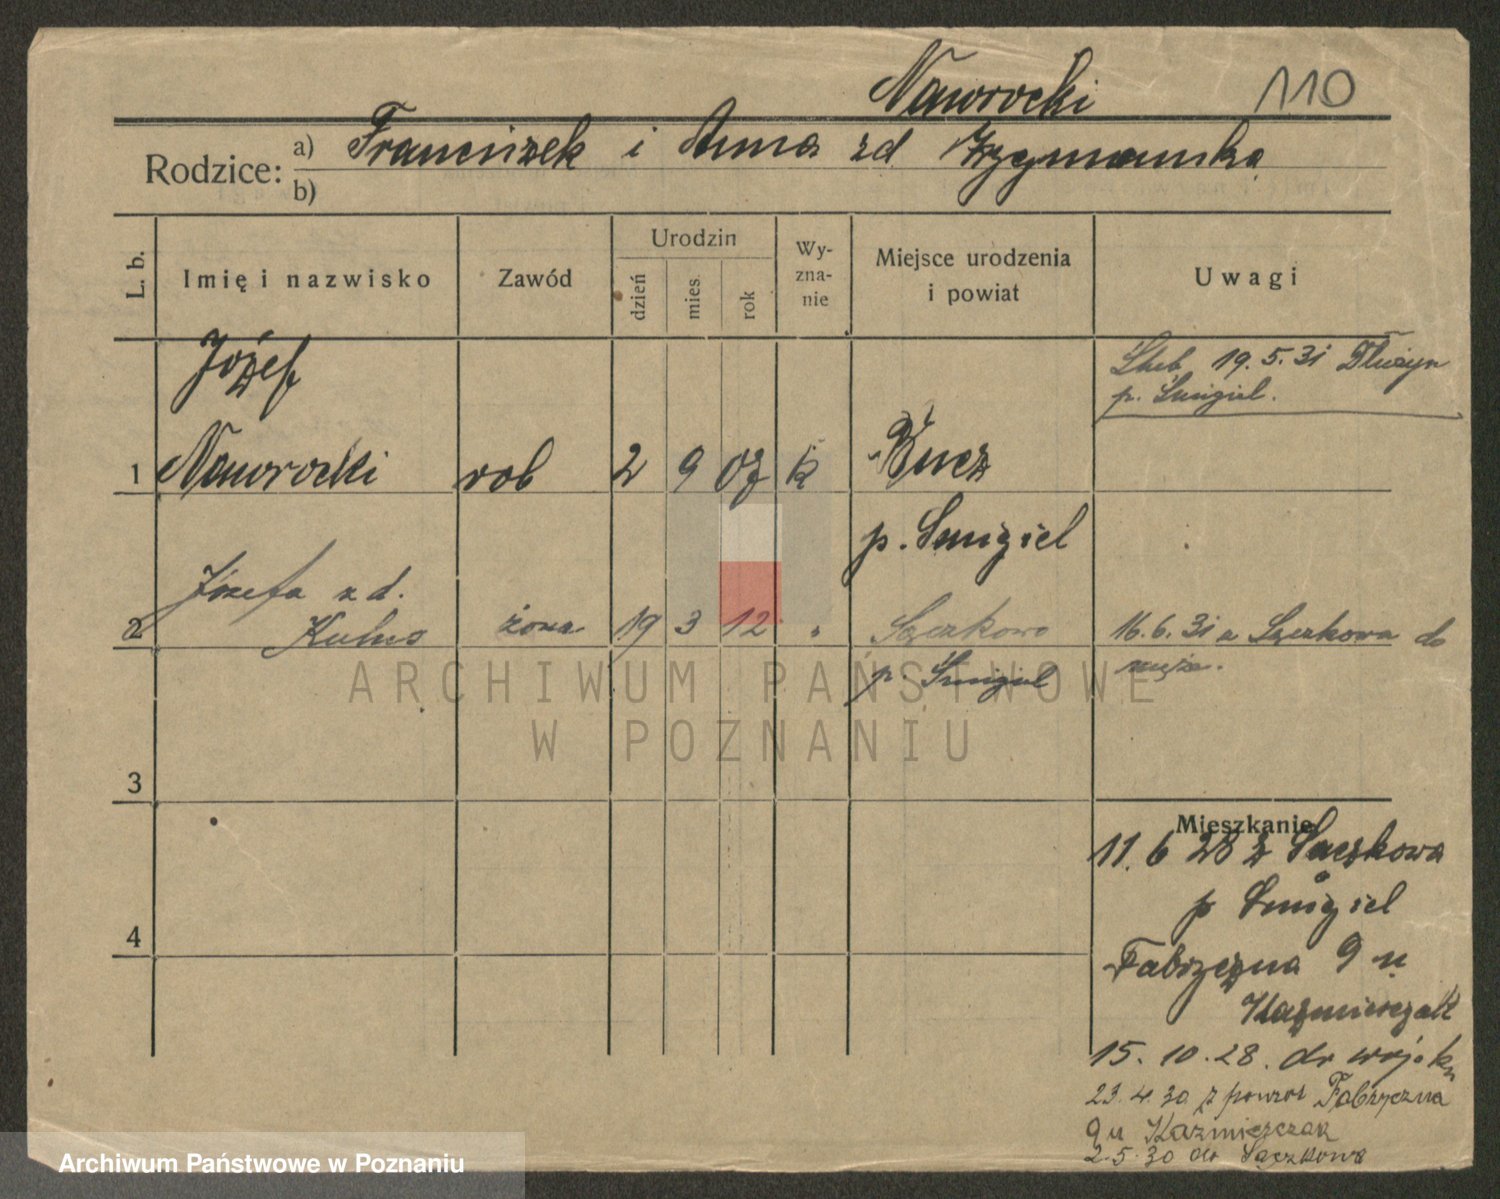 Nawrocki 110
Rodzice: a) Franciszek i Anna zd
b)
L. b. Imię i nazwisko Zawód Urodzin Wy-zna-nie Miejsce urodzenia i powiat Uwagi
dzień mies. rok
Józef
Ślub 19.5.31 Dłużyn
p. Śmigiel.
1 Nawrocki rob 2 9 07 k Bucz
p. Smigiel
Józefa zd.
2 Kulus żona 19 3 12 " Sączkowo 16.6.31 z Sączkowa do
p. Śmigiel męża.
3
4
Mieszkanie
11.6 28 z Sączkowa
p Smigiel
Fabryczna 9 u
Kaźmierczak
15.10.28. do wojska
23.4.30 z powrot Fabryczna
9 u Kaźmierczak
2.5.30 do Sączkowa
ARCHIWUM PAŃSTWOWE
W POZNANIU
Archiwum Państwowe w Poznaniu